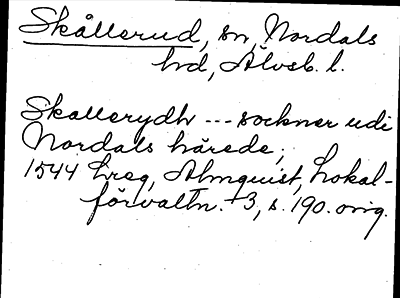 Skållerud, sn, Nordals
hd, Älvsb. l.
Skallerydh --- sockner udi
Nordals härede;
1544 hreg, Almquist, Lokal-
förvaltn. 3, s. 190. orig.